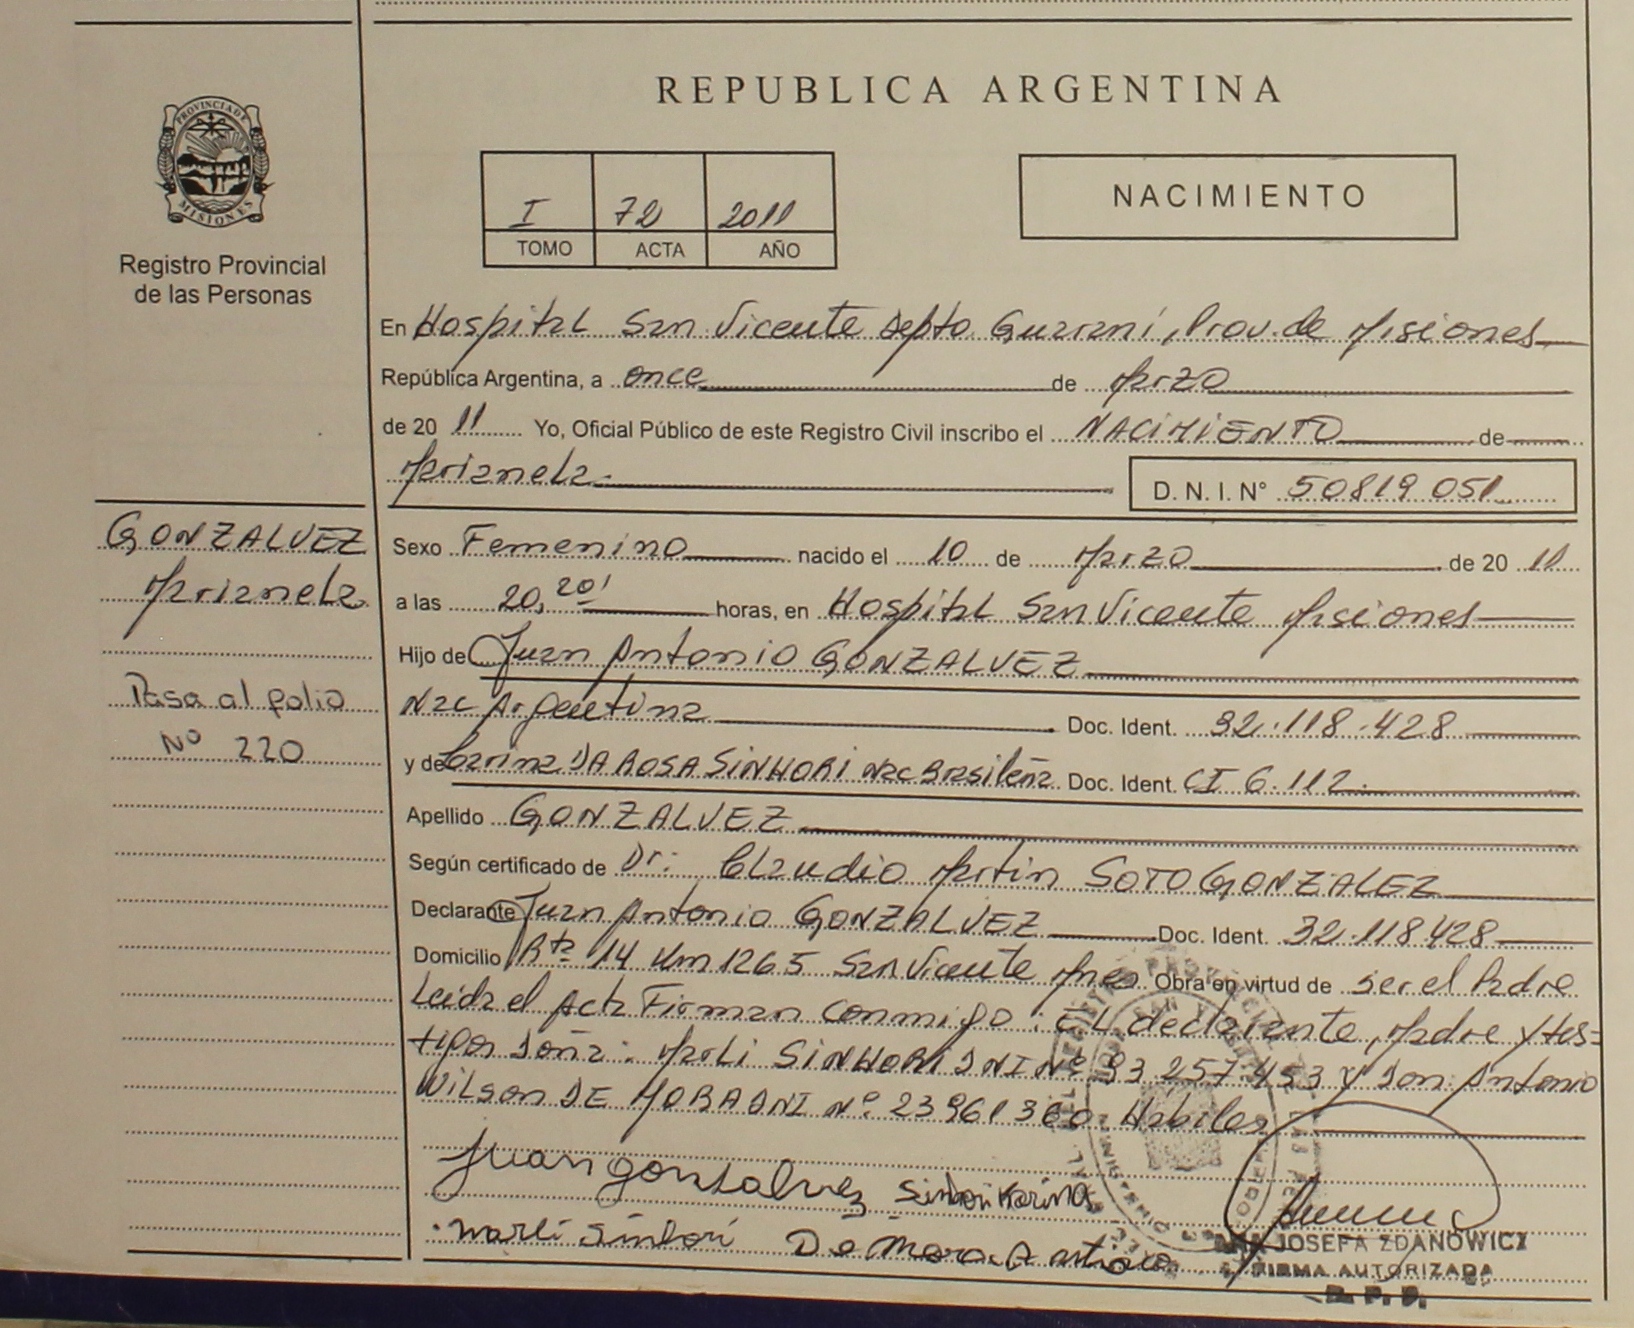 REPUBLICA ARGENTINA
PROVINCIA DE
MISIONES
Registro Provincial
de las Personas
I 72 2011
TOMO ACTA AÑO
NACIMIENTO
En Hospital San Vicente Depto. Guaraní, Prov. de Misiones
República Argentina, a once de Marzo
de 2011 Yo, Oficial Público de este Registro Civil inscribo el NACIMIENTO de
Marianela D. N. I. N° 50819 051
GONZALVEZ
Marianela
Pasa al folio
Nº 220
Sexo Femenino nacido el 10 de Marzo de 2011
a las 20,20' horas, en Hospital San Vicente Misiones
Hijo de Juan Antonio GONZALVEZ
Nac Argentina Doc. Ident. 32.118.428
y de Carina DA ROSA SINHORI Nac Brasileña Doc. Ident. CI 6.112.
Apellido GONZALVEZ
Según certificado de Dr: Claudio Martin SOTO GONZALEZ
Declarante Juan Antonio GONZALVEZ Doc. Ident. 32.118428
Domicilio Rta 14 Km 1265 San Vicente Mnes Obra en virtud de ser el Padre
Leida el Acta Firman conmigo: EL declarante, Madre y tes=
tigos Doña: Marli SINHORI DNI Nº 93 257.453 y Don Antonio
Wilson DE MORA DNI Nº. 23961360 Habiles
Juan gonzalvez Sinhori Karina
Marli Sinhori De Mora Antonio
JOSEFA ZDANOWICZ
FIRMA AUTORIZADA
R. P. P.